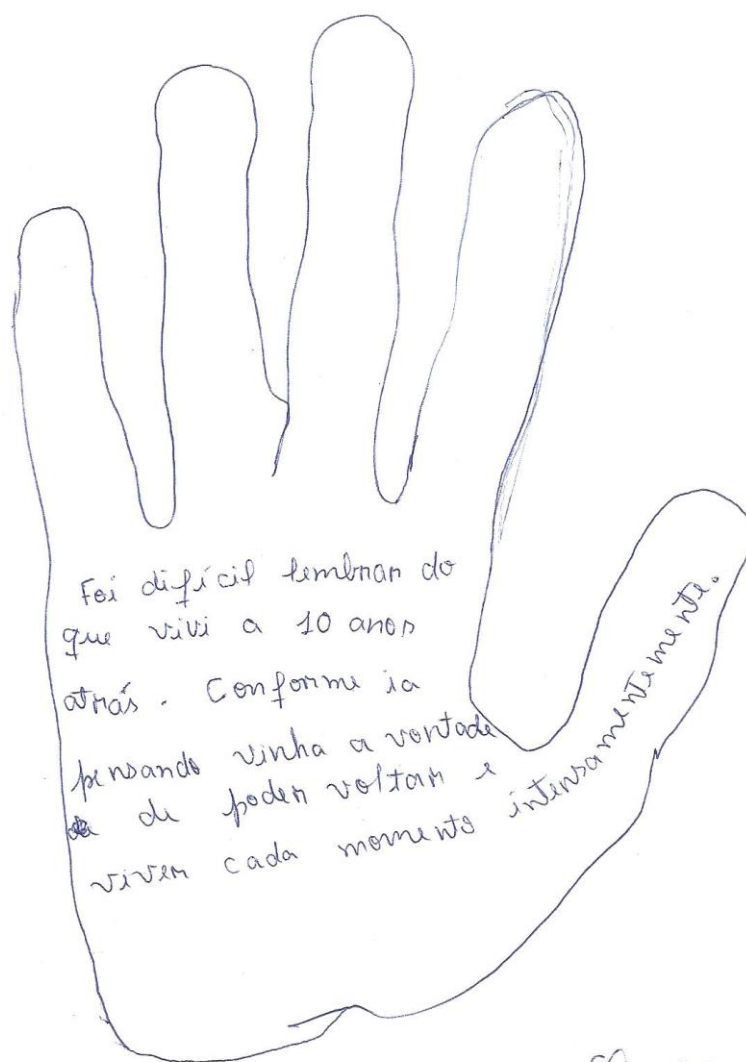 Foi difícil lembrar do
que vivi a 10 anos
atrás. Conforme ia
pensando vinha a vontade
de poder voltar e
viver cada momento intensamentemente.